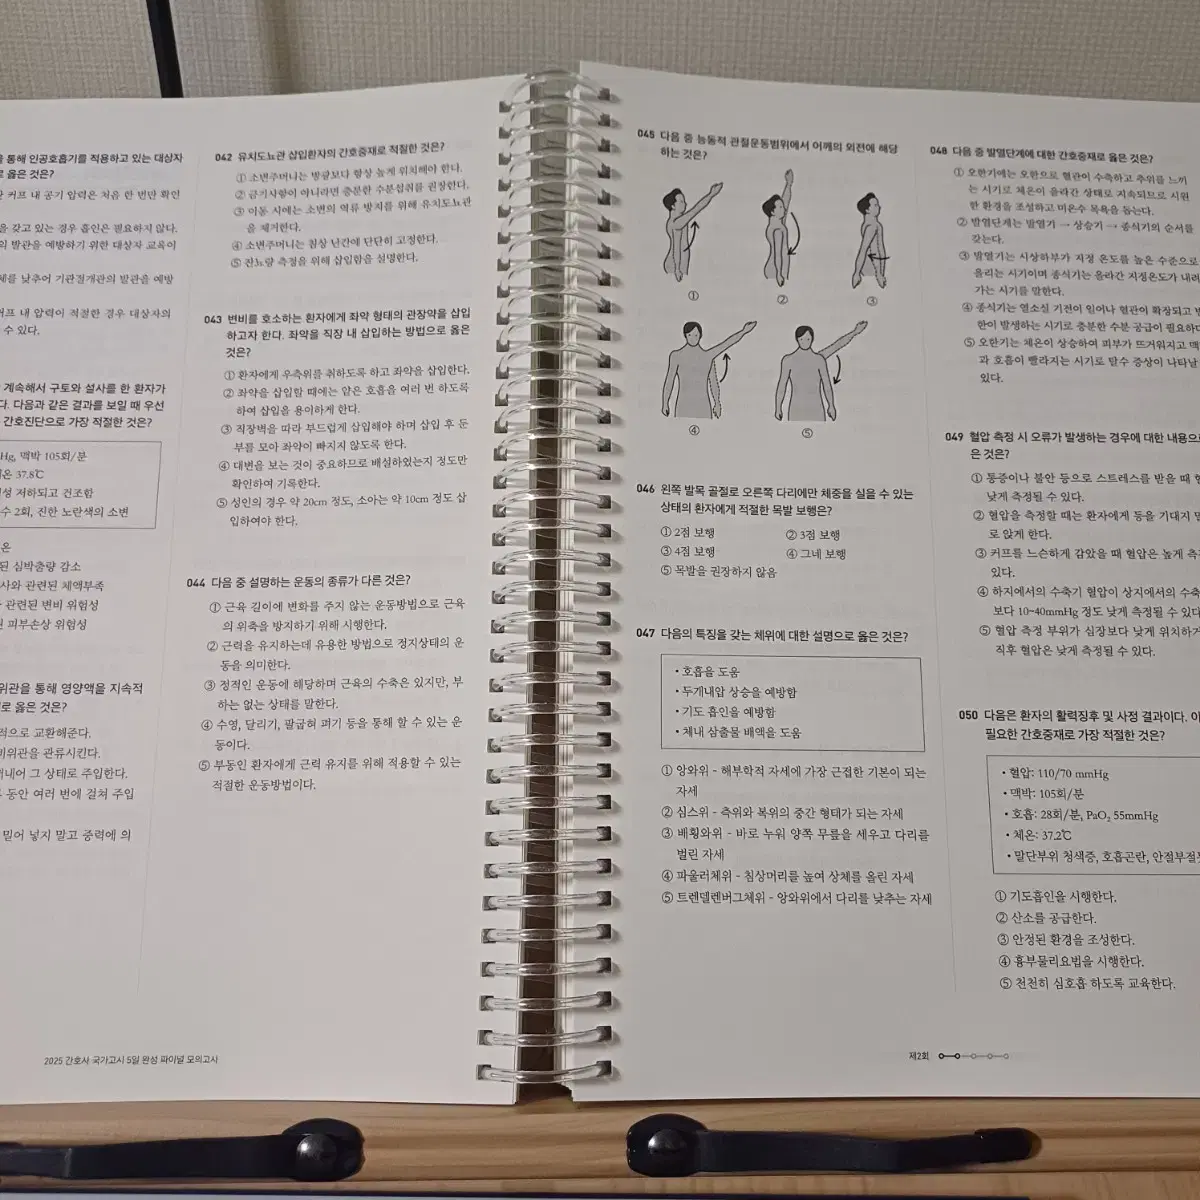 을 통해 인공호흡기를 적용하고 있는 대상자
로 옳은 것은?
관 커프 내 공기 압력은 처음 한 번만 확인
을 갖고 있는 경우 흡인은 필요하지 않다.
의 발관을 예방하기 위한 대상자 교육이
체를 낮추어 기관절개관의 발관을 예방
커프 내 압력이 적절한 경우 대상자의
수 있다.
계속해서 구토와 설사를 한 환자가
다. 다음과 같은 결과를 보일 때 우선
간호진단으로 가장 적절한 것은?
Hg, 맥박 105회/분
체온 37.8℃
성 저하되고 건조함
수 2회, 진한 노란색의 소변
온
된 심박출량 감소
사와 관련된 체액부족
관련된 변비 위험성
피부손상 위험성
위관을 통해 영양액을 지속적
로 옳은 것은?
적으로 교환해준다.
비위관을 관류시킨다.
그 상태로 주입한다.
동안 여러 번에 걸쳐 주입
밀어 넣지 말고 중력에 의
042 유치도뇨관 삽입환자의 간호중재로 적절한 것은?
① 소변주머니는 방광보다 항상 높게 위치해야 한다.
② 금기사항이 아니라면 충분한 수분섭취를 권장한다.
③ 이동 시에는 소변의 역류 방지를 위해 유치도뇨관
을 제거한다.
④ 소변주머니는 침상 난간에 단단히 고정한다.
⑤ 잔뇨량 측정을 위해 삽입함을 설명한다.
043 변비를 호소하는 환자에게 좌약 형태의 관장약을 삽입
하고자 한다. 좌약을 직장 내 삽입하는 방법으로 옳은
것은?
① 환자에게 우측위를 취하도록 하고 좌약을 삽입한다.
② 좌약을 삽입할 때에는 얕은 호흡을 여러 번 하도록
하여 삽입을 용이하게 한다.
③ 직장벽을 따라 부드럽게 삽입해야 하며 삽입 후 둔
부를 모아 좌약이 빠지지 않도록 한다.
④ 대변을 보는 것이 중요하므로 배설하였는지 정도만
확인하여 기록한다.
⑤ 성인의 경우 약 20cm 정도, 소아는 약 10cm 정도 삽
입하여야 한다.
044 다음 중 설명하는 운동의 종류가 다른 것은?
① 근육 길이에 변화를 주지 않는 운동방법으로 근육
의 위축을 방지하기 위해 시행한다.
② 근력을 유지하는데 유용한 방법으로 정지상태의 운
동을 의미한다.
③ 정적인 운동에 해당하며 근육의 수축은 있지만, 부
하는 없는 상태를 말한다.
④ 수영, 달리기, 팔굽혀 펴기 등을 통해 할 수 있는 운
동이다.
⑤ 부동인 환자에게 근력 유지를 위해 적용할 수 있는
적절한 운동방법이다.
2025 간호사 국가고시 5일 완성 파이널 모의고사
045 다음 중 능동적 관절운동범위에서 어깨의 외전에 해당
하는 것은?
① ② ③
④ ⑤
046 왼쪽 발목 골절로 오른쪽 다리에만 체중을 실을 수 있는
상태의 환자에게 적절한 목발 보행은?
① 2점 보행 ② 3점 보행
③ 4점 보행 ④ 그네 보행
⑤ 목발을 권장하지 않음
047 다음의 특징을 갖는 체위에 대한 설명으로 옳은 것은?
• 호흡을 도움
• 두개내압 상승을 예방함
• 기도 흡인을 예방함
• 체내 삼출물 배액을 도움
① 앙와위 - 해부학적 자세에 가장 근접한 기본이 되는
자세
② 심스위 - 측위와 복위의 중간 형태가 되는 자세
③ 배횡와위 - 바로 누워 양쪽 무릎을 세우고 다리를
벌린 자세
④ 파울러체위 - 침상머리를 높여 상체를 올린 자세
⑤ 트렌델렌버그체위 - 앙와위에서 다리를 낮추는 자세
048 다음 중 발열단계에 대한 간호중재로 옳은 것은?
① 오한기에는 오한으로 혈관이 수축하고 추위를 느끼
는 시기로 체온이 올라간 상태로 지속되므로 시원
한 환경을 조성하고 미온수 목욕을 돕는다.
② 발열단계는 발열기 → 상승기 → 종식기의 순서를
갖는다.
③ 발열기는 시상하부가 지정 온도를 높은 수준으로
올리는 시기이며 종식기는 올라간 지정온도가 내려
가는 시기를 말한다.
④ 종식기는 열소실 기전이 일어나 혈관이 확장되고 발
한이 발생하는 시기로 충분한 수분 공급이 필요하다
⑤ 오한기는 체온이 상승하여 피부가 뜨거워지고 맥
과 호흡이 빨라지는 시기로 탈수 증상이 나타날
있다.
049 혈압 측정 시 오류가 발생하는 경우에 대한 내용으로
은 것은?
① 통증이나 불안 등으로 스트레스를 받을 때 혈
낮게 측정될 수 있다.
② 혈압을 측정할 때는 환자에게 등을 기대지 말
로 앉게 한다.
③ 커프를 느슨하게 감았을 때 혈압은 높게 측
있다.
④ 하지에서의 수축기 혈압이 상지에서의 수축
보다 10~40mmHg 정도 낮게 측정될 수 있다
⑤ 혈압 측정 부위가 심장보다 낮게 위치하거
직후 혈압은 낮게 측정될 수 있다.
050 다음은 환자의 활력징후 및 사정 결과이다. 이
필요한 간호중재로 가장 적절한 것은?
• 혈압: 110/70 mmHg
• 맥박: 105회/분
• 호흡: 28회/분, PaO₂ 55mmHg
• 체온: 37.2℃
• 말단부위 청색증, 호흡곤란, 안절부절못
① 기도흡인을 시행한다.
② 산소를 공급한다.
③ 안정된 환경을 조성한다.
④ 흉부물리요법을 시행한다.
⑤ 천천히 심호흡 하도록 교육한다.
제2회